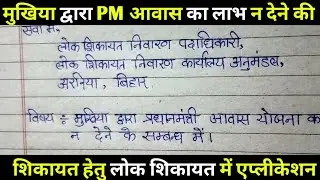 मुखिया द्वारा PM आवास का लाभ न देने की
सेवा में,
लोक शिकायत निवारण पदाधिकारी,
लोक शिकायत निवारण कार्यालय अनुमंडल,
अररिया, बिहार
विषय :- मुखिया द्वारा प्रधानमंत्री आवास योजना का
न देने के सम्बन्ध में।
शिकायत हेतु लोक शिकायत में एप्लीकेशन